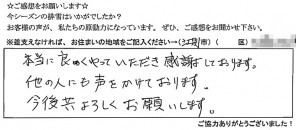 ☆ご感想をお願いします☆
今シーズンの排雪はいかがでしたか?
お客様の声が、私たちの原動力になっています。ぜひ、ご感想をお聞かせ下さい。
※差支えなければ、お住まいの地域をご記入ください→( 市)( 区)
本当に良くやっていただき感謝しております。
他の人にも声をかけております。
今後共よろしくお願いします。
ご協力ありがとうございました!